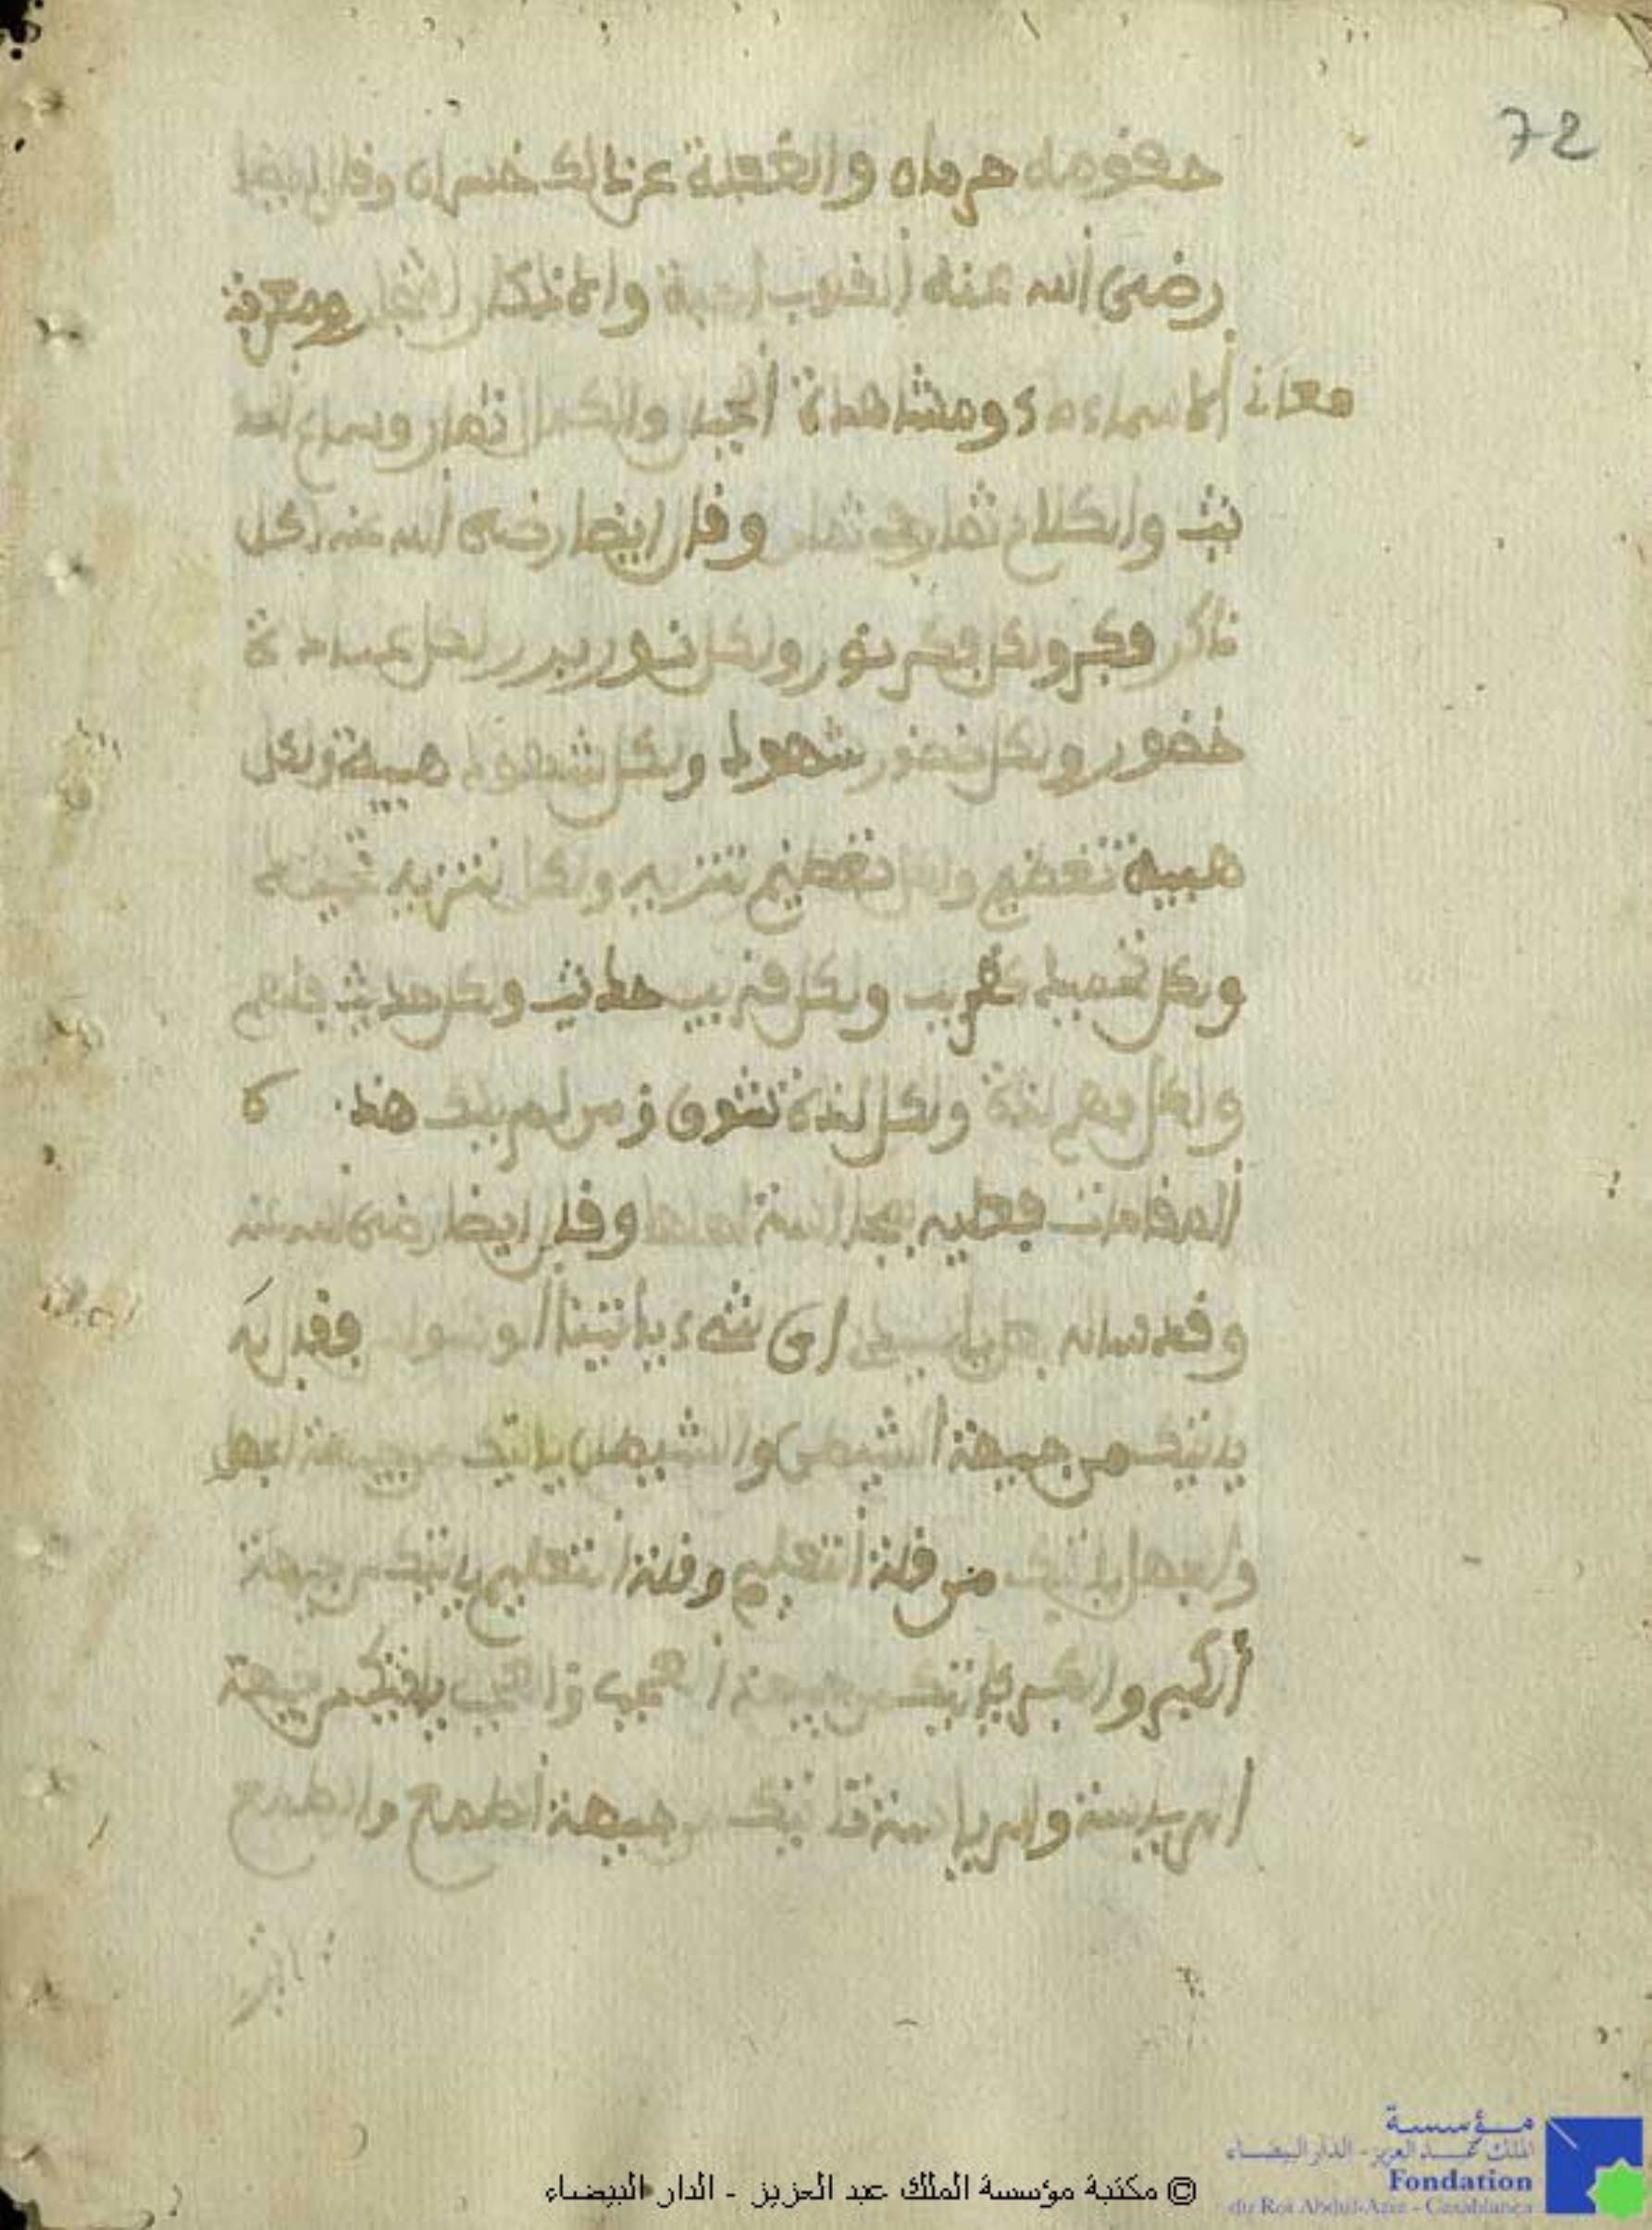 72
حقوقه حرمان والغفلة عن ذالك خسران وقال ايضا
رضي الله عنه القلوب والاذكار ومعرفة
معان الاسماء ومشاهدة والكمال ثمار وسماع الحد
يث والكلام ثمار في ثمار وقال ايضا رضي الله عنه لكل
ذاكر فكر ولكل فكر نور ولكل نور ولكل عبادة
حضور ولكل حضور شهود ولكل شهود هيبة ولكل
هيبة تعظيم ولكل تعظيم تنزيه ولكل تنزيه
ولكل تقريب ولكل قريب حديث ولكل حديث فهم
ولكل فهم لذة ولكل لذة شوق ومن لم يبلغ هذه
المقامات فعليه وقال ايضا رضي الله عنه
وقد ساله اي شيء ياتينا الوسواس فقال له
ياتيك من جيهة الشيطان والشيطان ياتيك من جيهة الجهل
والجهل ياتيك من قلة التعليم وقلة التعليم ياتيك من جيهة
الكبر والكبر ياتيك من جيهة العجب والعجب ياتيك من جيهة
الرياسة والرياسة تاتيك من جيهة الطمع والطمع
© مكتبة مؤسسة الملك عبد العزيز - الدار البيضاء
مؤسسة
الملك عبد العزيز - الدار البيضاء
Fondation
du Roi Abdul-Aziz - Casablanca